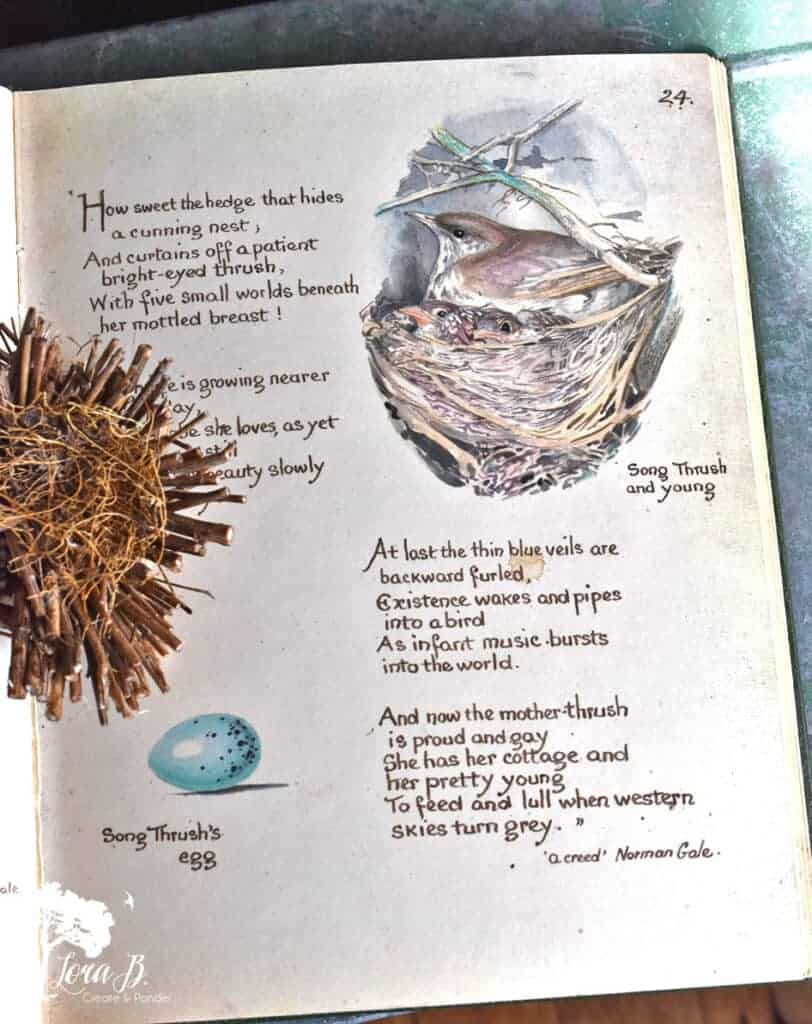 24.
'How sweet the hedge that hides
a cunning nest,
And curtains off a patient
bright-eyed thrush,
With five small worlds beneath
her mottled breast!
is growing nearer
she loves, as yet
beauty slowly
Song Thrush
and young
At last the thin blue veils are
backward furled,
Existence wakes and pipes
into a bird
As infant music bursts
into the world.
And now the mother-thrush
is proud and gay
She has her cottage and
her pretty young
To feed and lull when western
skies turn grey."
'a creed' Norman Gale.
Song Thrush's
egg
Lora B.
Create & Ponder